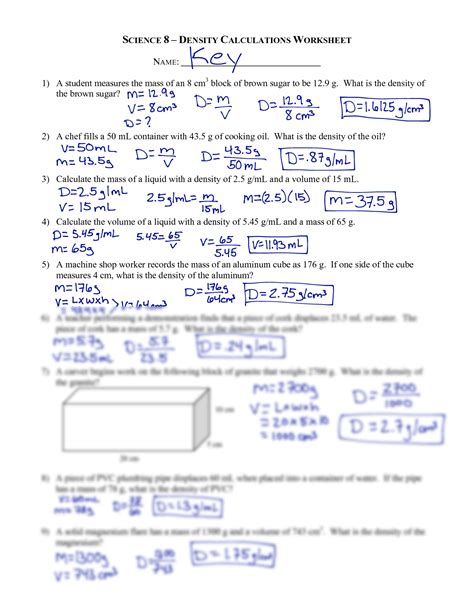 SCIENCE 8 – DENSITY CALCULATIONS WORKSHEET
NAME: Key
1) A student measures the mass of an 8 cm³ block of brown sugar to be 12.9 g. What is the density of
the brown sugar? m = 12.9g
V = 8cm³
D = ?
D = m/V
D = 12.9g / 8 cm³
D = 1.6125 g/cm³
2) A chef fills a 50 mL container with 43.5 g of cooking oil. What is the density of the oil?
V = 50mL
m = 43.5g
D = m/V
D = 43.5g / 50mL
D = .87g/mL
3) Calculate the mass of a liquid with a density of 2.5 g/mL and a volume of 15 mL.
D = 2.5g/mL
V = 15mL
2.5g/mL = m / 15mL
m = (2.5)(15)
m = 37.5g
4) Calculate the volume of a liquid with a density of 5.45 g/mL and a mass of 65 g.
D = 5.45g/mL
m = 65g
5.45 = 65/V
V = 65 / 5.45
V = 11.93mL
5) A machine shop worker records the mass of an aluminum cube as 176 g. If one side of the cube
measures 4 cm, what is the density of the aluminum?
m = 176g
V = LxWxh > V = 64cm³
D = 176g / 64cm³
D = 2.75g/cm³
6) A teacher performing a demonstration finds that a piece of cork displaces 23.5 mL of water. The
piece of cork has a mass of 5.7 g. What is the density of the cork?
m = 5.7g
V = 23.5mL
D = 5.7 / 23.5
D = .24g/mL
7) A carver begins work on the following block of granite that weighs 2700 g. What is the density of
the granite?
m = 2700g
V = LxWxh
= 20x5x10
= 1000 cm³
D = 2700 / 1000
D = 2.7g/cm³
10 cm
5 cm
20 cm
8) A piece of PVC plumbing pipe displaces 60 mL when placed into a container of water. If the pipe
has a mass of 78 g, what is the density of PVC?
V = 60mL
m = 78g
D = 1.3g/mL
9) A solid magnesium flare has a mass of 1300 g and a volume of 743 cm³. What is the density of the
magnesium?
m = 1300g
V = 743 cm³
D = 1.75g/cm³